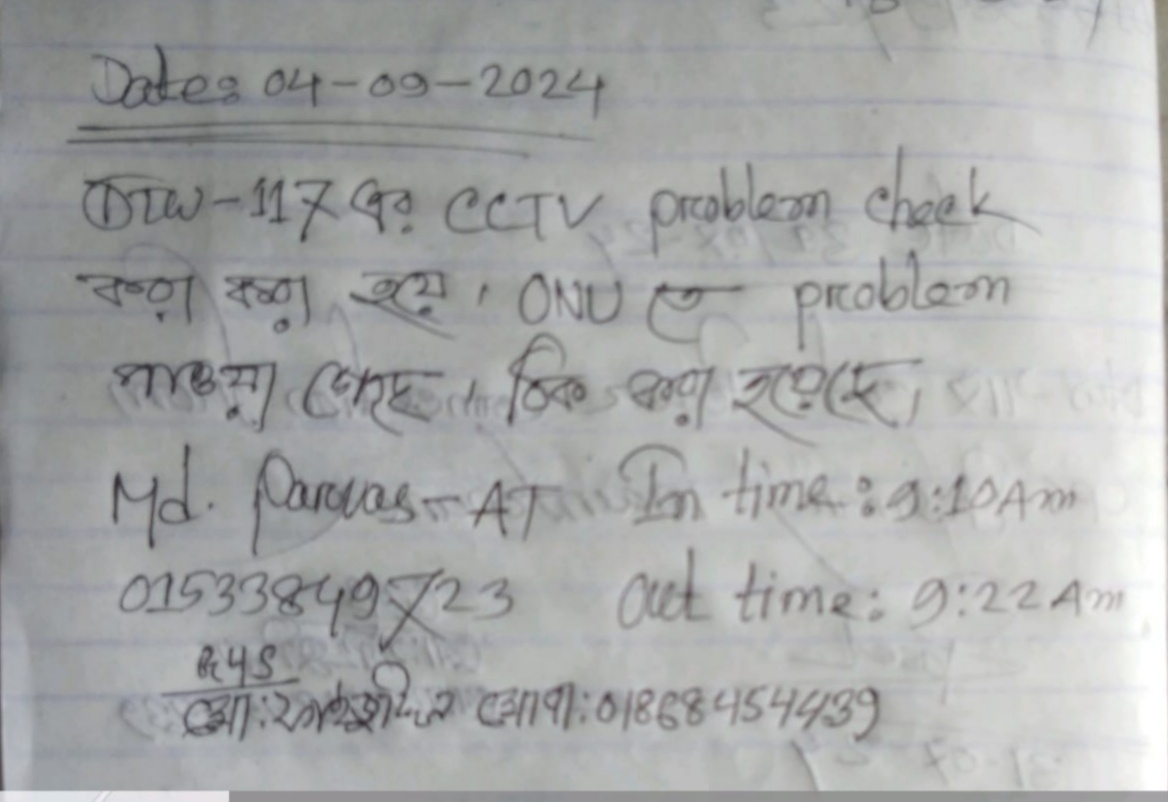 Date: 04-09-2024
DTW-117 এর CCTV problem check
করা করা হয়, ONU তে problem
পাওয়া গেছে, ঠিক করা হয়েছে,
Md. Parvas-AT In time: 9:10 Am
01533849723 Out time: 9:22 Am
মো: মোবা: 01868454439